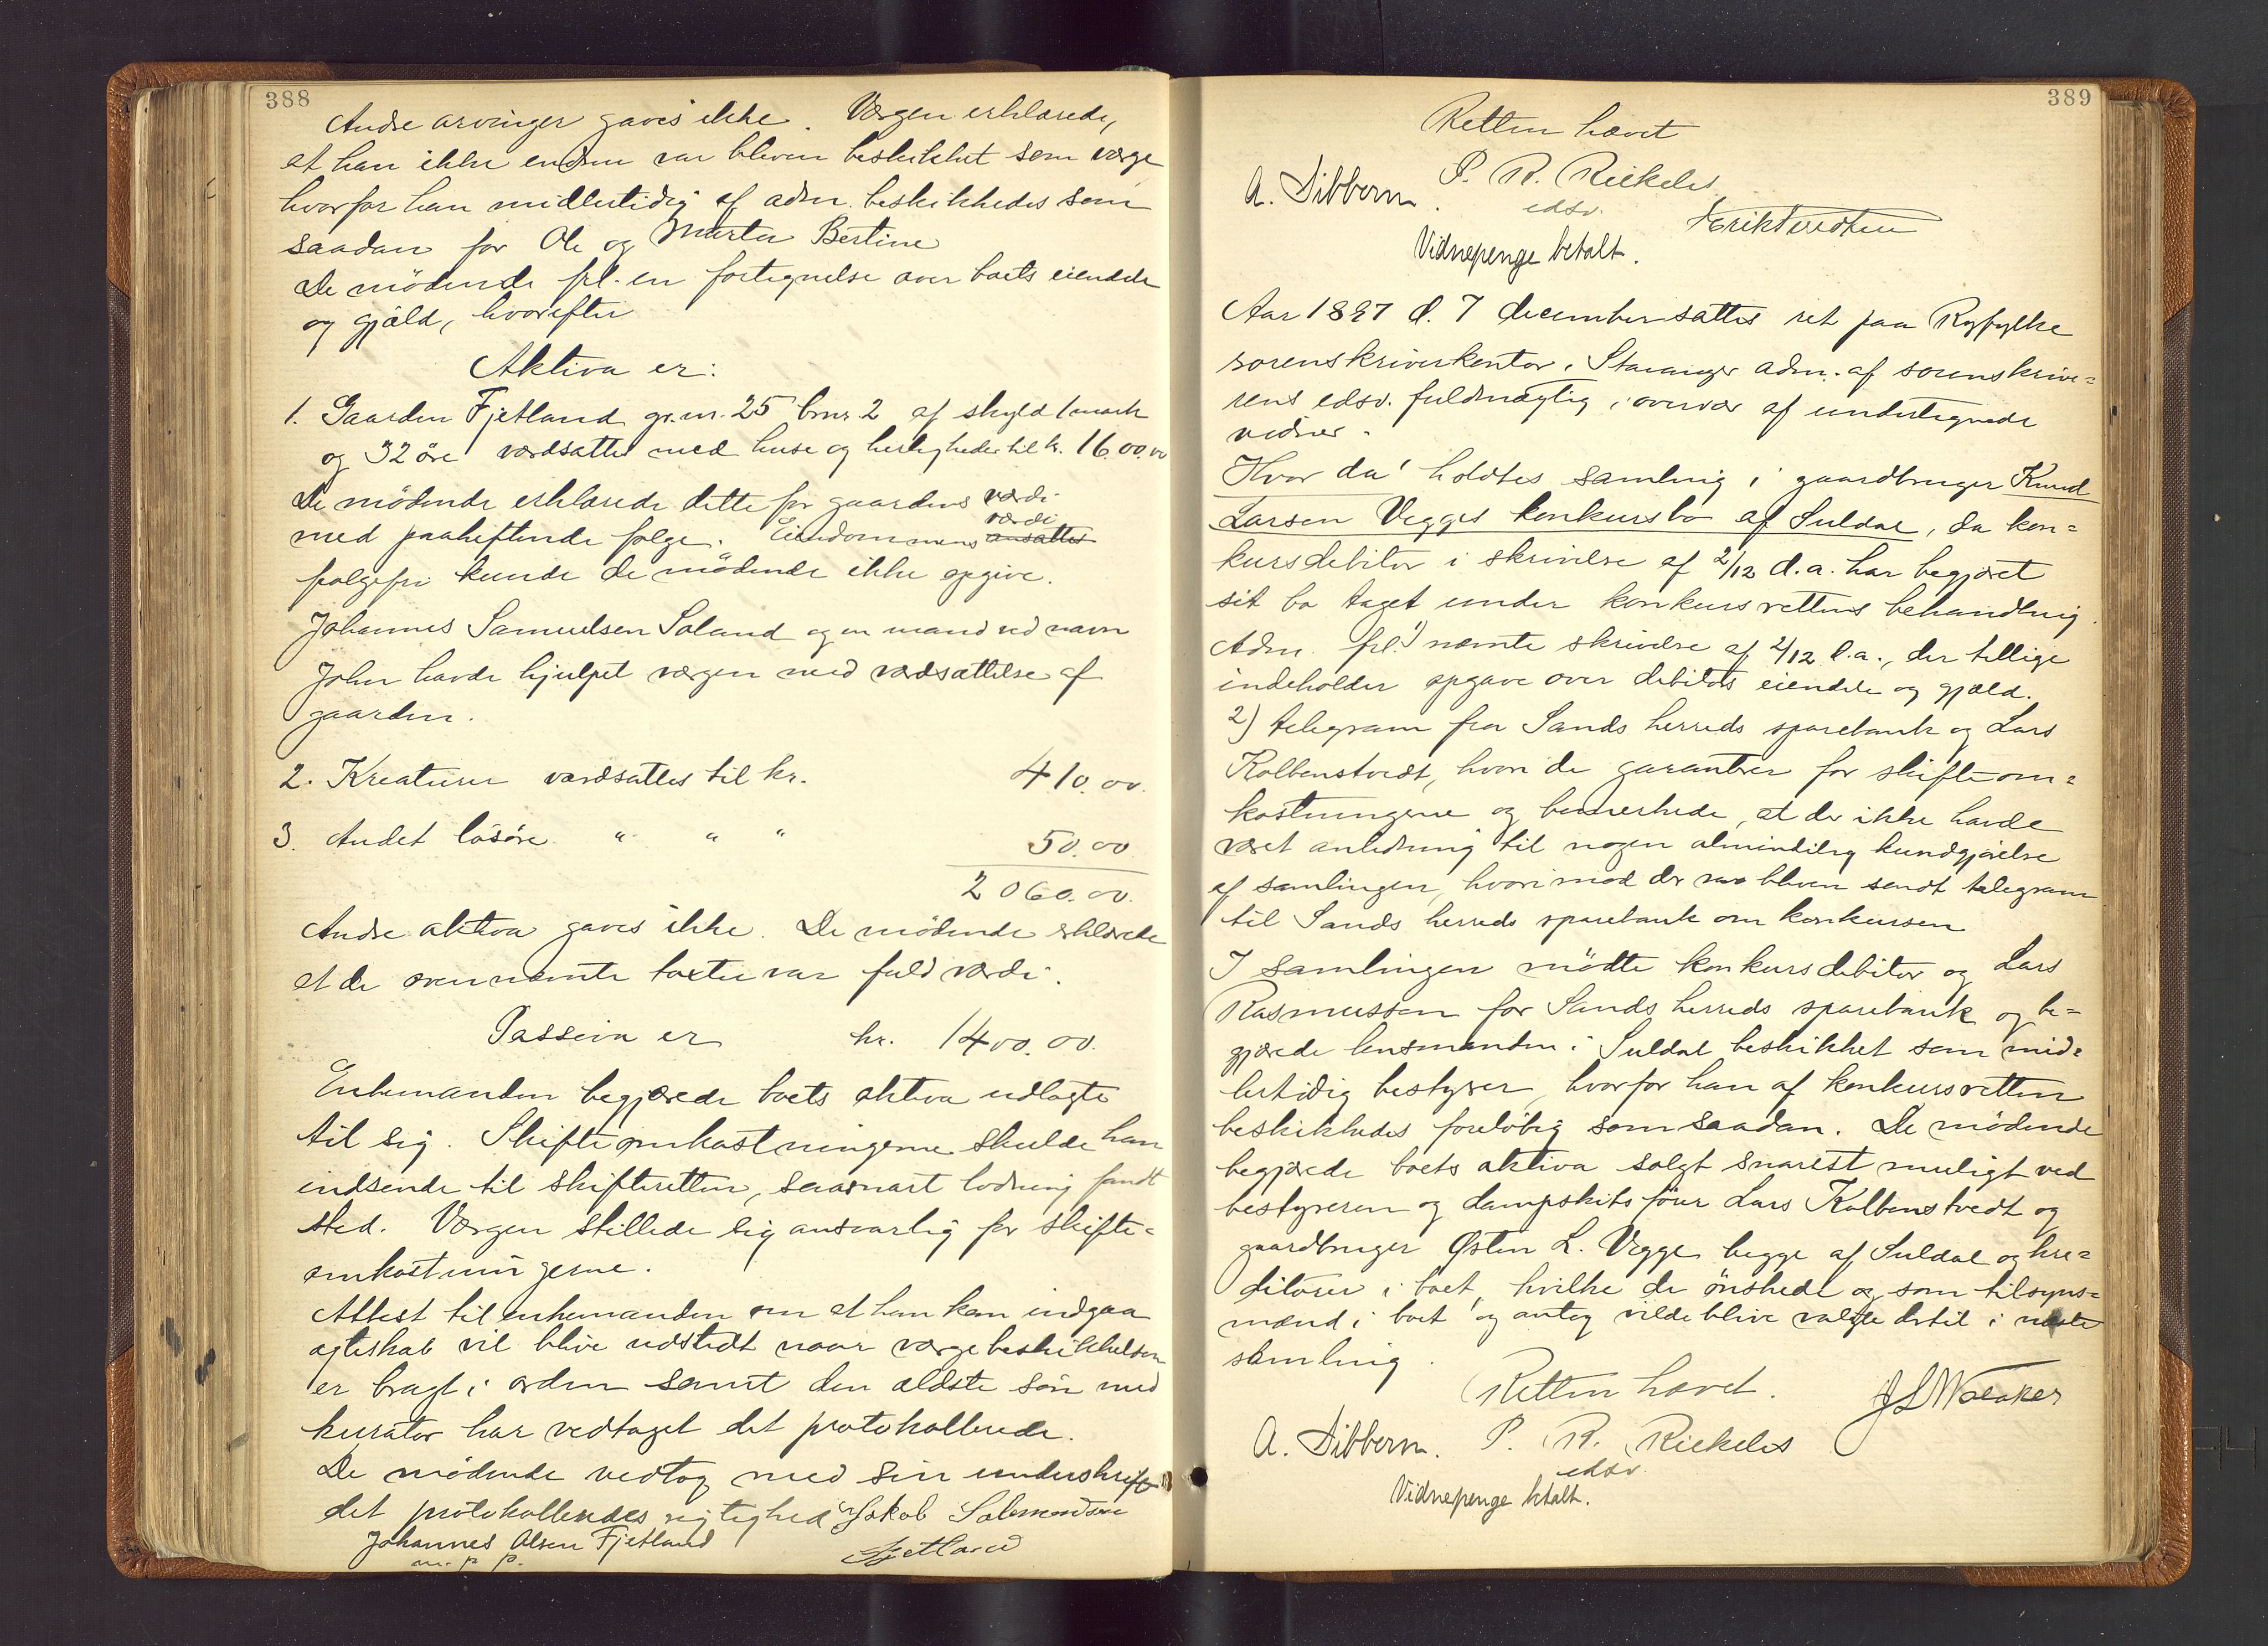 388
Andre arvinger gaves ikke. Værgen erklærede,
at han ikke endnu var bleven beskikket som værge
hvorfor han midlertidig af adm. beskikkedes som
saadan for Ole og Marta Bertine
De mödende frl. en fortegnelse over boets eiendele
og gjæld, hvorefter
Aktiva er:
1. Gaarden Fjetland gr.nr. 25 brnr. 2 af skyld 1 mark
og 32 öre værdsattes med huse og herligheder til kr. 1600.00
De mödende erklærede dette for gaardens værdi
med paaheftende følge. Eiendommens værdi ansattes
følgefri kunde de mödende ikke opgive.
Johannes Samuelsen Soland og en mand ved navn
John havde hjulpet værgen med værdsættelse af
gaarden.
2. Kreaturer værdsattes til kr. 410.00.
3. Andet løsöre " " " 50.00
2060.00.
Andre aktiva gaves ikke. De mödende erklærede
at de ovennævnte taxter var fuld værdi.
Passiva er kr. 1400.00.
Enkemanden begjærede boets aktiva udlagte
til sig. Skifteomkostningerne skulde han
indsende til skifteretten, saasnart lodning fandt
sted. Værgen stillede sig ansvarlig for skifte=
omkostningerne.
Attest til enkemanden om at han kan indgaa
ægteskab vil blive udstedt naar værgebeskikkelsen
er bragt i orden samt den ældste sön med
kurator har vedtaget det protokollerede.
De mödende vedtog med sin underskrift
det protokolleredes rigtighed Jakob Salomonsen
Johannes Olsen Fjetland Fjetland
m. p. p.
389
Retten hævet
A. Dibbern. P. R. Rickeles
edsv.
Vidnepenge betalt.
Aar 1897 d. 7 december sattes ret paa Ryfylke
sorenskriverkontor i Stavanger adm. af sorenskrive=
rens edsv. fuldmægtig i overvær af undertegnede
vidner.
Hvor da holdtes samling i gaardbruger Knud
Larsen Vegges konkursbo af Suldal, da kon=
kursdebitor i skrivelse af 2/12 d.a. har begjæret
sit bo taget under konkursrettens behandling.
Adm. frl. 1) nævnte skrivelse af 2/12 d.a., der tillige
indeholder opgave over debitors eiendele og gjæld.
2) telegram fra Sands herreds sparebank og Lars
Kolbenstvedt, hvori de garanterer for skifteom=
kostningerne og bemerkede, at der ikke havde
været anledning til nogen almindelig kundgjørelse
af samlingen, hvorimod der var bleven sendt telegram
til Sands herreds sparebank om konkursen
I samlingen mödte konkursdebitor og Lars
Rasmussen for Sands herreds sparebank og be=
gjærede lensmanden i Suldal beskikket som mid=
lertidig bestyrer, hvorfor han af konkursretten
beskikkedes foreløbig som saadan. De mödende
begjærede boets aktiva solgt snarest muligt ved
bestyreren og dampskibsförer Lars Kolbenstvedt og
gaardbruger Østen L. Vegge begge af Suldal og kre=
ditorer i boet, hvilke de ønskede og som tilsyns=
mænd i boet og antog vilde blive valgte dertil i næste
samling.
Retten hævet.
A. Dibbern. P. R. Rickeles
edsv.
Vidnepenge betalt.